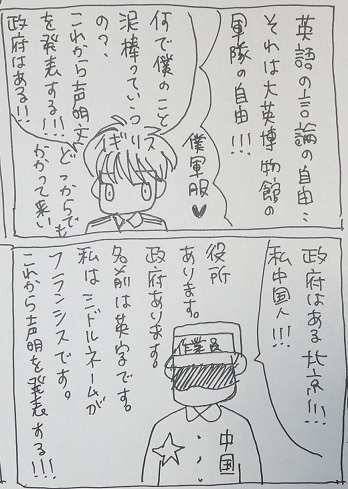 英語の言論の自由‥
それは大英博物館の
軍隊の自由!!!
僕軍服♥
何で僕のこと
泥棒っていうの?、
これから声明文
を発表する!!!
政府はある!!!
イギリス
どっからでも
かかって来い
政府はある北京!!!
私中国人!!!
役所
あります。
政府あります。
名前は英字です。
私はミドルネームが
フランシスです。
これから声明を発表する!!!
作業員
中国